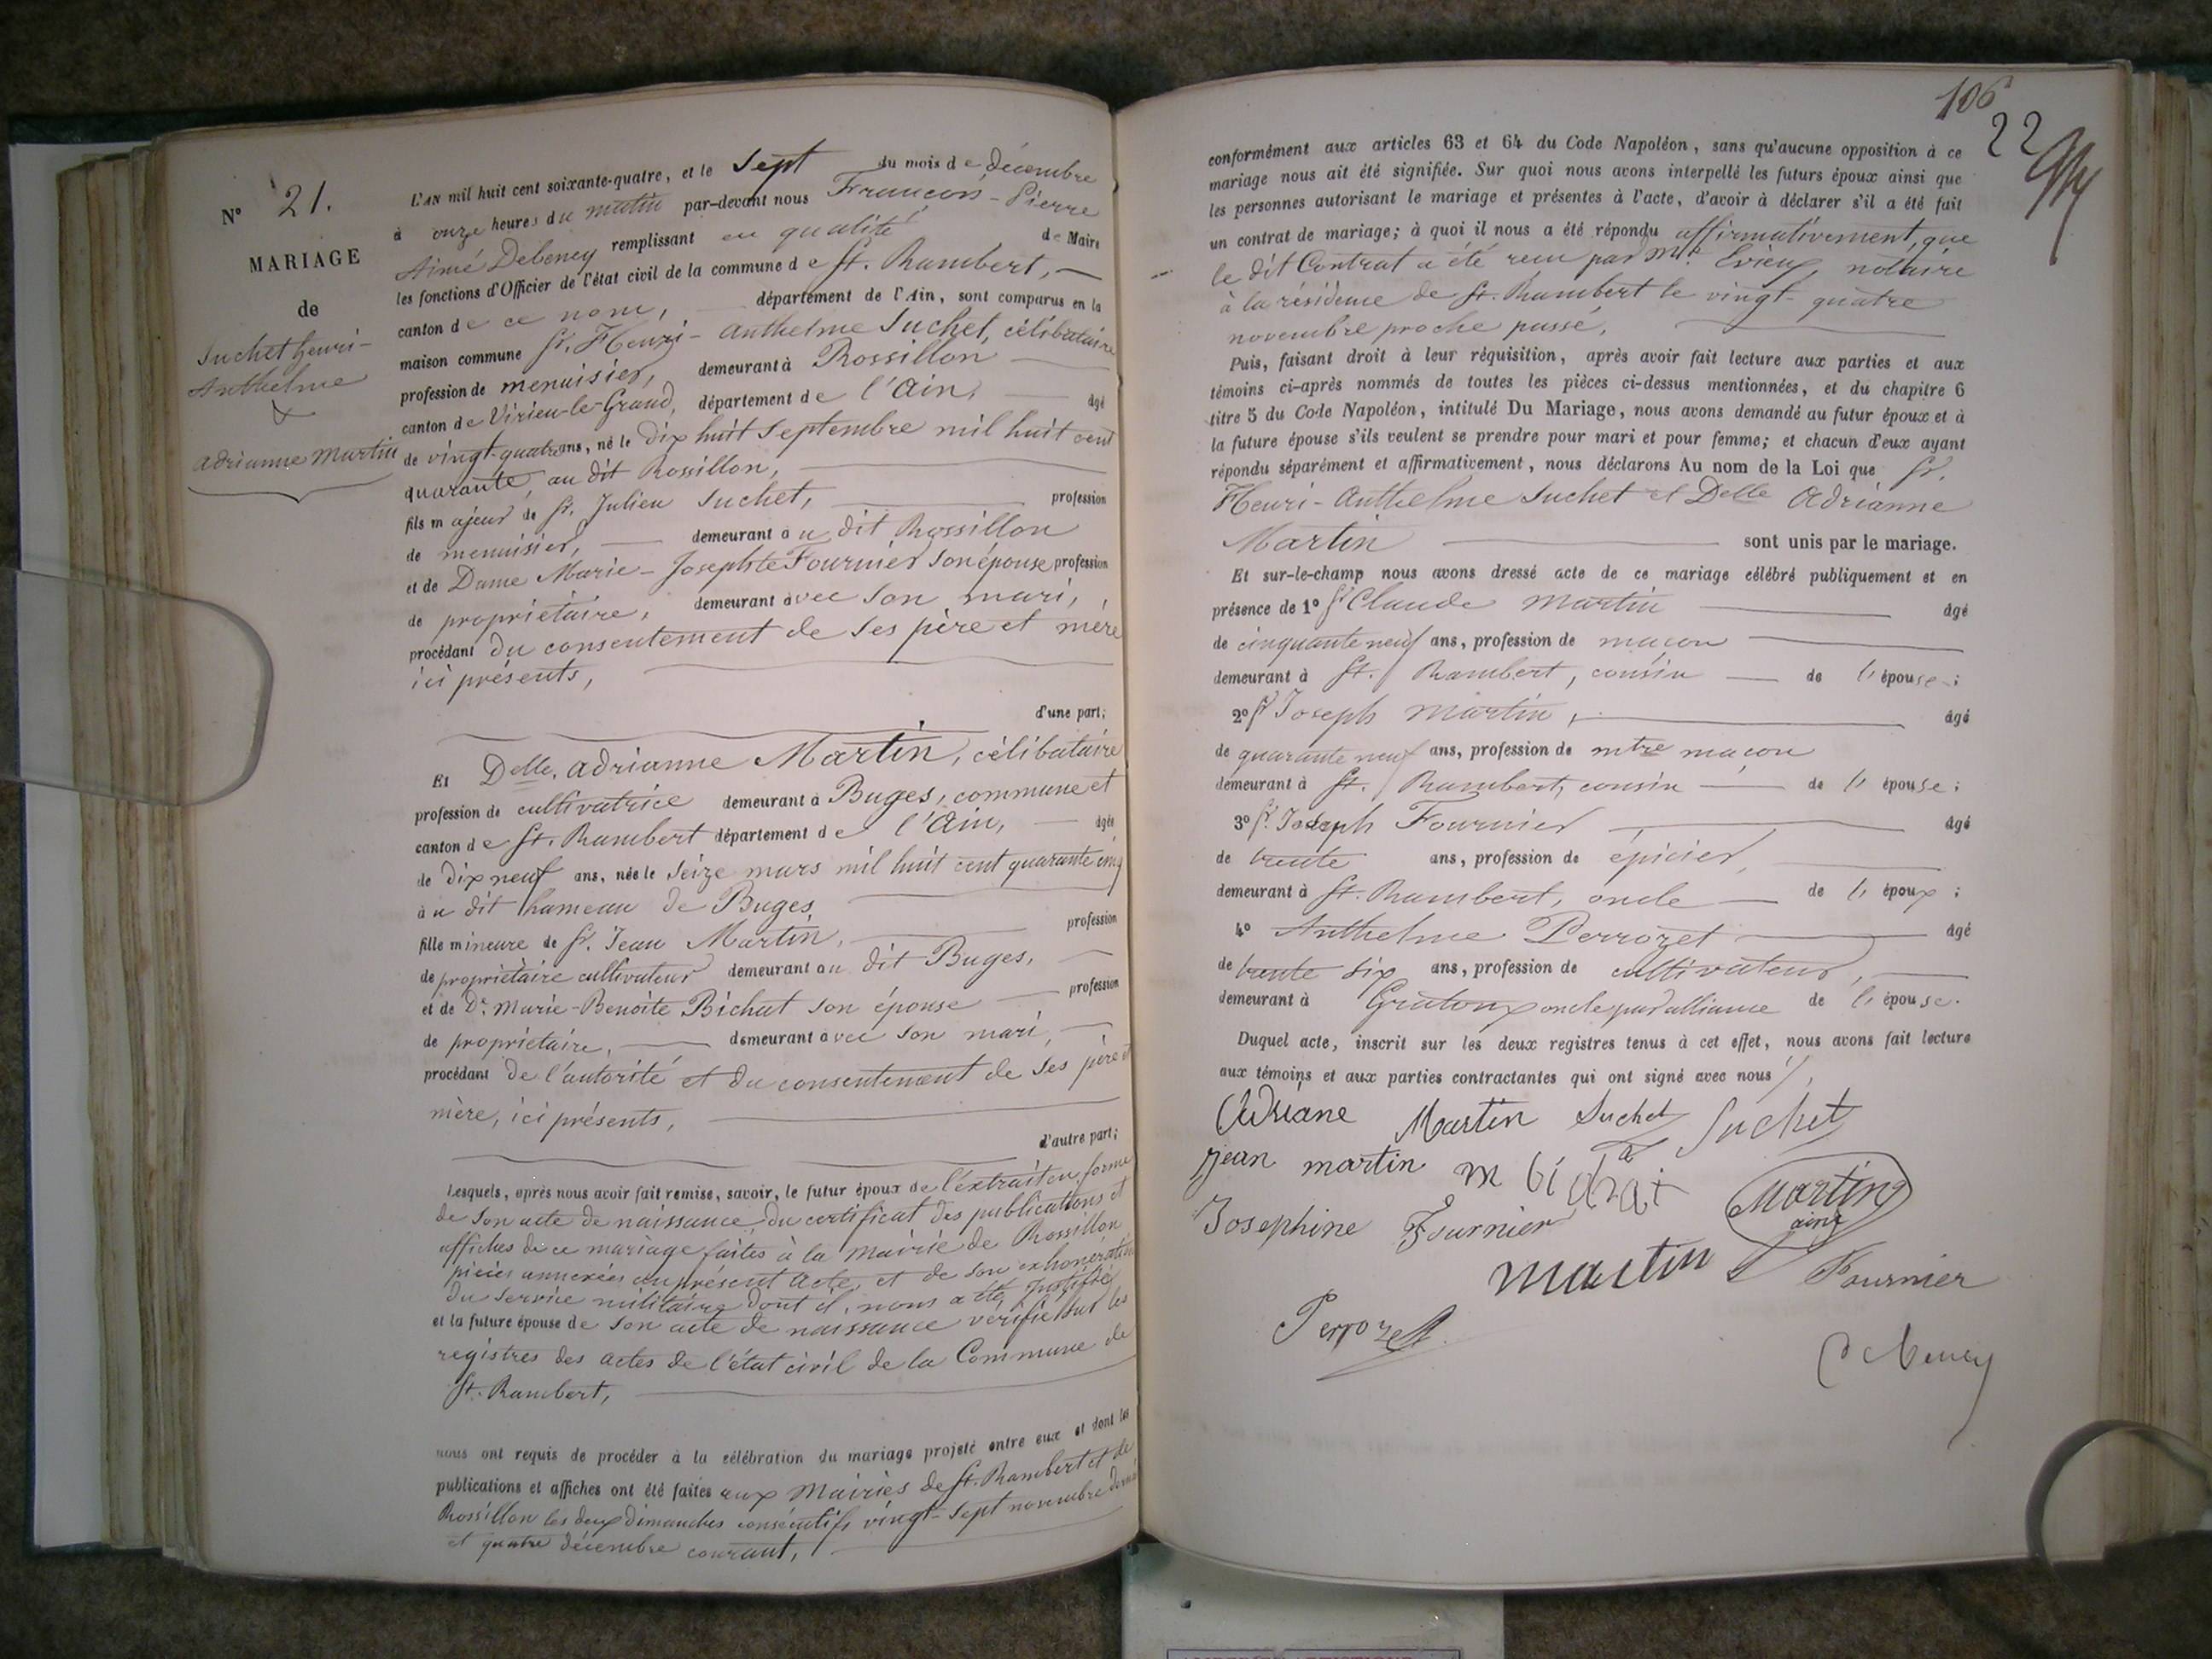 N° 21.
MARIAGE
de
Suchet henri-
Anthelme
&
Adrianne Martin
L'AN mil huit cent soixante-quatre, et le Sept du mois de décembre
à onze heures du matin par-devant nous François-Pierre
Aimé Debeney remplissant en qualité de Maire
les fonctions d'Officier de l'état civil de la commune de St. Rambert,
canton de ce nom, département de l'Ain, sont comparus en la
maison commune Sr. Henri-Anthelme Suchet, célibataire
profession de menuisier, demeurant à Rossillon
canton de Virieu-le-Grand, département de l'Ain, âgé
de vingt-quatre ans, né le dix huit Septembre mil huit cent
quarante, au dit Rossillon,
fils majeur de Sr. Julien Suchet, profession
de menuisier, demeurant au dit Rossillon
et de Dame Marie-Josephte Fournier son épouse profession
de propriétaire, demeurant avec son mari,
procédant du consentement de ses père et mère
ici présents,
d'une part;
Et Delle. Adrianne Martin, célibataire
profession de cultivatrice demeurant à Buges, commune et
canton de St. Rambert département de l'Ain, âgée
de dix neuf ans, née le seize mars mil huit cent quarante cinq
au dit hameau de Buges
fille mineure de Sr. Jean Martin, profession
de propriétaire cultivateur demeurant au dit Buges,
et de De. Marie-Benoite Bichat son épouse profession
de propriétaire, demeurant avec son mari,
procédant de l'autorité et du consentement de ses père et
mère, ici présents,
d'autre part;
Lesquels, après nous avoir fait remise, savoir, le futur époux de l'extrait en forme
de son acte de naissance, du certificat des publications et
affiches de ce mariage faites à la Mairie de Rossillon
pièces annexées au présent acte, et de son exhonération
du service militaire dont il nous a été justifié
et la future épouse de son acte de naissance vérifié sur les
registres des actes de l'état civil de la Commune de
St. Rambert,
nous ont requis de procéder à la célébration du mariage projeté entre eux et dont les
publications et affiches ont été faites aux Mairies de St. Rambert et de
Rossillon les deux dimanches consécutifs vingt-sept novembre dernier
et quatre décembre courant,
106
22
conformément aux articles 63 et 64 du Code Napoléon, sans qu'aucune opposition à ce
mariage nous ait été signifiée. Sur quoi nous avons interpellé les futurs époux ainsi que
les personnes autorisant le mariage et présentes à l'acte, d'avoir à déclarer s'il a été fait
un contrat de mariage; à quoi il nous a été répondu affirmativement, que
le dit Contrat a été reçu par Me. Evieux, notaire
à la résidence de St. Rambert le vingt-quatre
novembre proche passé,
Puis, faisant droit à leur réquisition, après avoir fait lecture aux parties et aux
témoins ci-après nommés de toutes les pièces ci-dessus mentionnées, et du chapitre 6
titre 5 du Code Napoléon, intitulé Du Mariage, nous avons demandé au futur époux et à
la future épouse s'ils veulent se prendre pour mari et pour femme; et chacun d'eux ayant
répondu séparément et affirmativement, nous déclarons Au nom de la Loi que Sr.
Henri-Anthelme Suchet et Delle Adrianne
Martin sont unis par le mariage.
Et sur-le-champ nous avons dressé acte de ce mariage célébré publiquement et en
présence de 1° Sr Claude Martin âgé
de cinquante neuf ans, profession de maçon
demeurant à St. Rambert, cousin de l'épouse;
2° Sr Joseph Martin, âgé
de quarante neuf ans, profession de mtre maçon
demeurant à St. Rambert, cousin de l'épouse;
3° Sr. Joseph Fournier âgé
de trente ans, profession de épicier,
demeurant à St. Rambert, oncle de l'époux;
4° Anthelme Perrozet âgé
de trente six ans, profession de cultivateur,
demeurant à Gratoux oncle par alliance de l'épouse.
Duquel acte, inscrit sur les deux registres tenus à cet effet, nous avons fait lecture
aux témoins et aux parties contractantes qui ont signé avec nous
Adriane Martin Suchet Suchet
jean martin m bichat
Martin
ainé
Josephine Fournier
martin J Fournier
Perrozet
Debeney